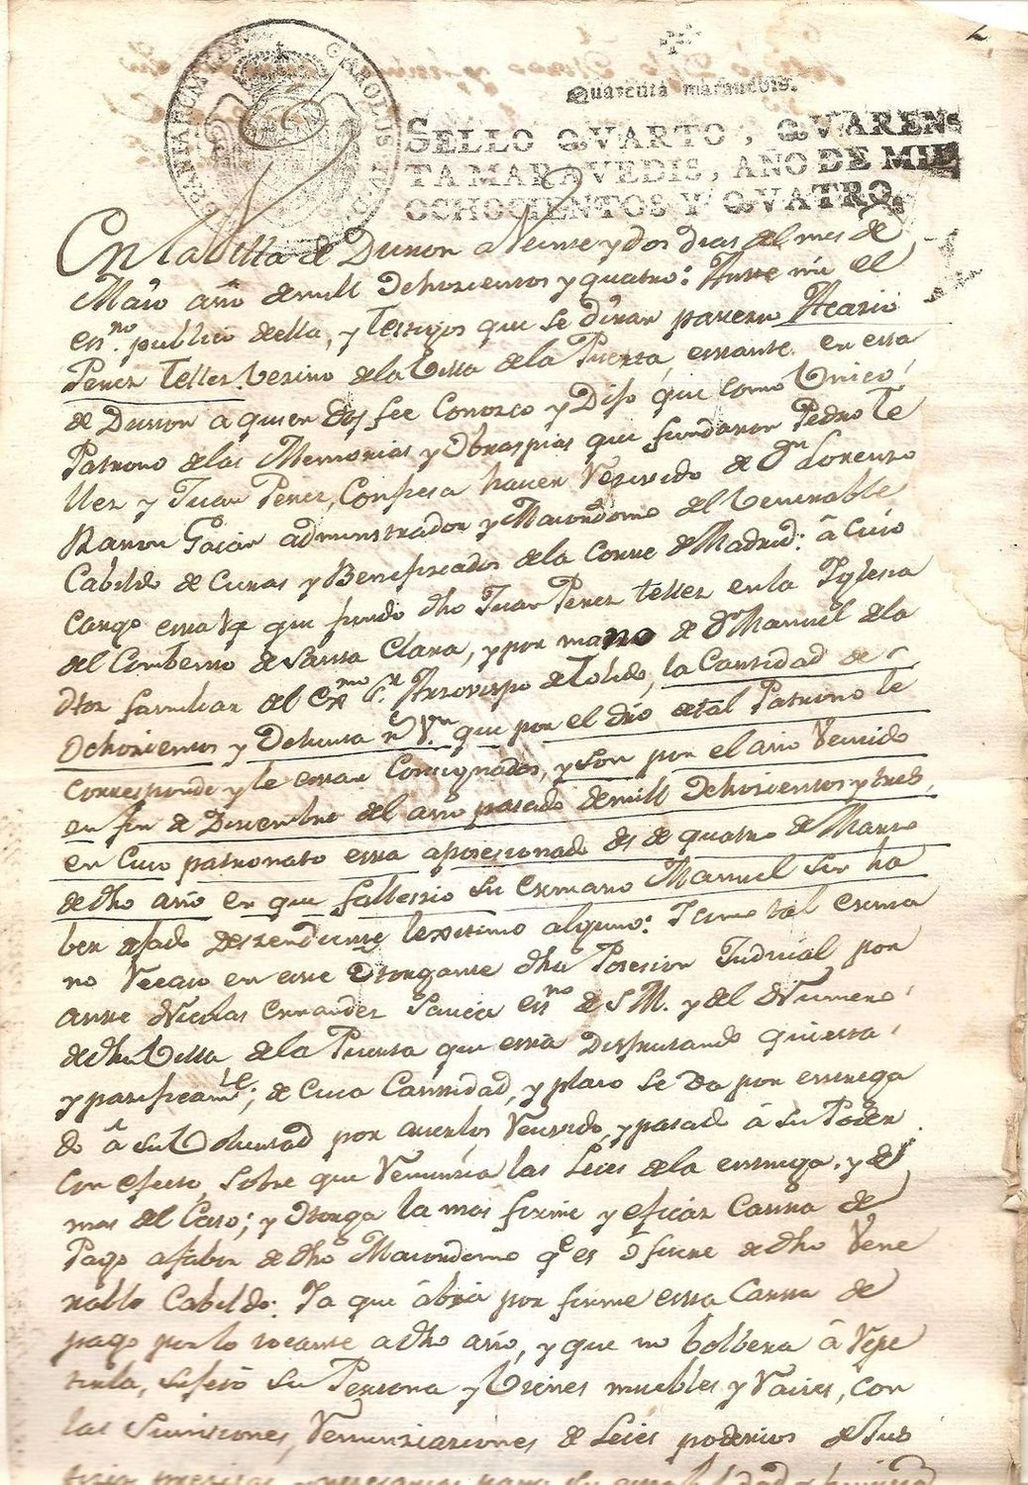 2
HISPANIARUM REX
CAROLUS IV D G
Quarenta maravedis.
SELLO QVARTO, QVAREN-
TA MARAVEDIS, AÑO DE MIL
OCHOCIENTOS Y QVATRO.
En la Villa de Duron a Veinte y dos dias del mes de
Maio año de mill Ochozientos y quatro: Ante mi el
essno. publico de ella, y testigos que se diran parecio Acacio
Perez Tellez Vezino de la Villa de la Puerta, estante en esta
de Duron a quien doy fee Conozco y Dijo que como Unico
Patrono de las Memorias y Obraspias que fundaron Pedro Te
llez y Juan Perez, Confiesa haver Rezivido de Dn Lorenzo
Ramon Gaian administrador y Maiordomo del Venerable
Cabildo de Curas y Benefiziados de la Corte de Madrid: â cuio
cargo esta la que fundo dho Juan Perez tellez en la Iglesia
del Combento de Santa Clara, y por mano de Dn Manuel de la
Dtor familiar del Exmo Sr. Arzovispo de Toledo, la Cantidad de
Ochozientos y Ochenta rs Vn. que por el dro de tal Patrono le
corresponde y le estan Consignados, y son por el año Venzido
en fin de Diciembre del año pasado de mill Ochozientos y tres,
en Cuio patronato esta aposesionado desde quatro de Marzo
de dho año en que fallezio su ermano Manuel sin ha
ber dejado deszendiente lexitimo alguno: I como tal erma
no Recaio en este Otorgante dha Posesion Judicial por
ante Nicolas Ernandez Garcia essno de S.M. y del Numero
de dha Villa de la Puerta que esta Disfrutando quieta
y pazificamte; de cuia Cantidad, y plazo se da por entrega
do â su Voluntad por averlos Rezivido y pasado â su Poder
con efecto, sobre que Renunzia las Leies de la entrega y de
mas del Caso; y Otorga la mas firme y eficaz Carta de
Pago a fabor de dho Maiordomo qe es ô fuere de dho Vene
rable Cabildo: I a que âbra por firme esta Carta de
pago por lo tocante a dho año, y que no bolbera â Repe
tirla, sujeto su Persona y Vienes muebles y Raizes, con
las Sumisiones, Renunziaciones de Leies poderios de Jus